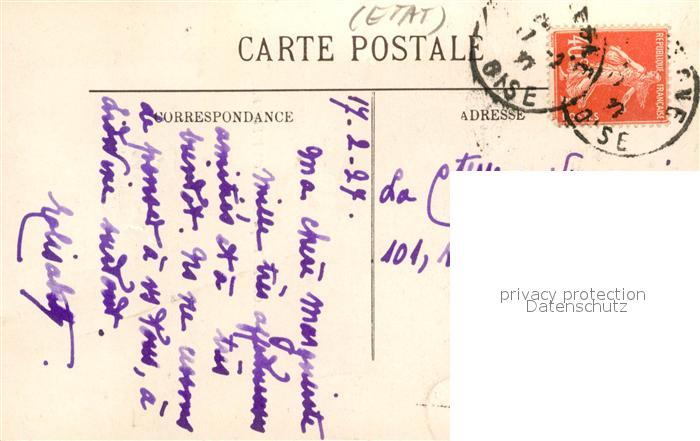 (ETAT)
CARTE POSTALE
CORRESPONDANCE
ADRESSE
REPUBLIQUE FRANÇAISE
40
OISE
OISE
17-2-27.
Ma chère Marguerite
mille très affectueuses
amitiés et à très
bientôt. Ns ne cessons
de penser à vs tous, à
surtout.
Elisabeth
La
101,
privacy protection
Datenschutz